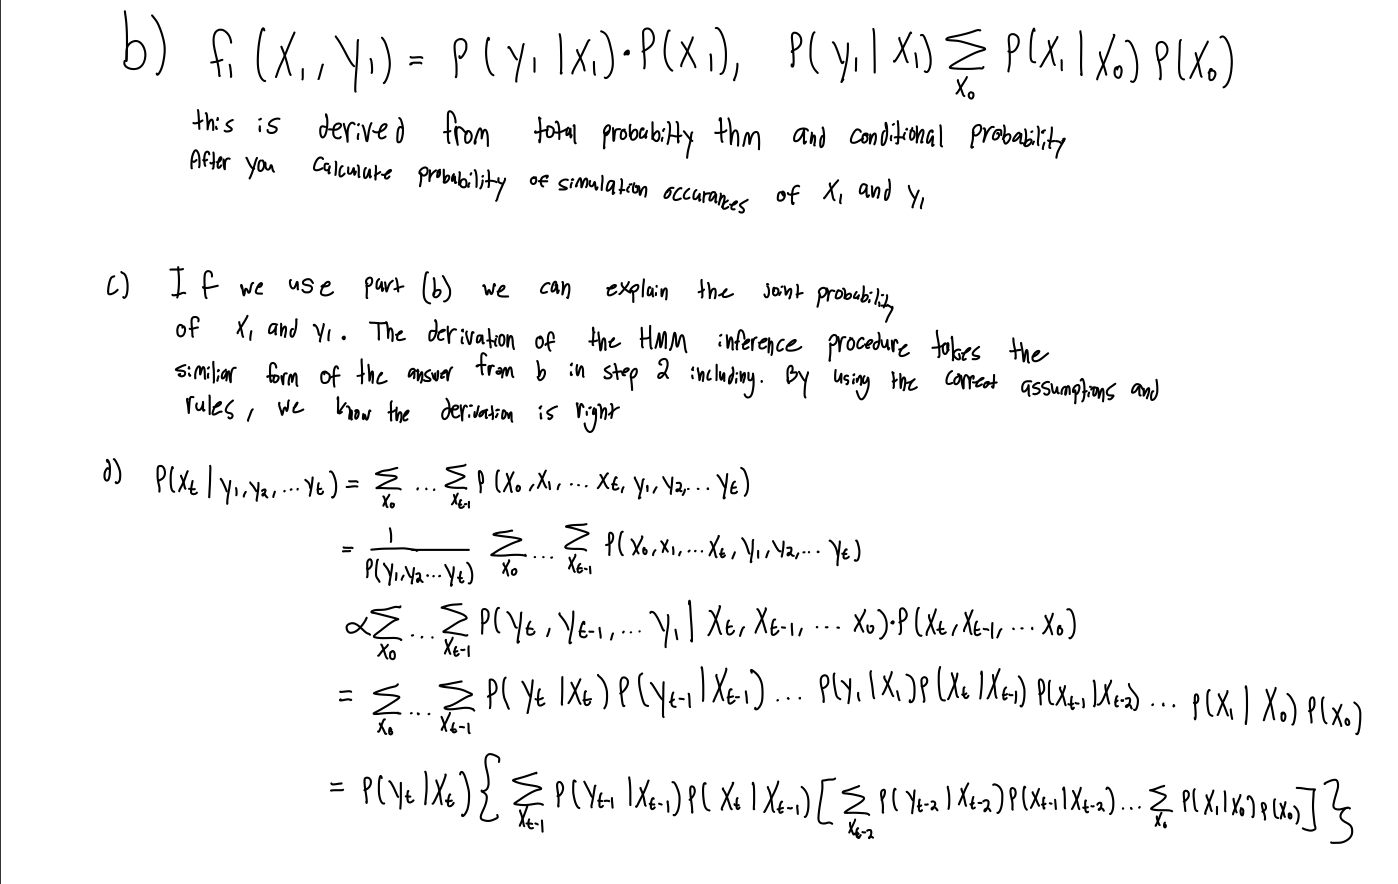 b) f₁(X₁, Y₁) = P(Y₁ | X₁)·P(X₁), P(Y₁ | X₁) Σ_{X₀} P(X₁ | X₀) P(X₀)
this is derived from total probabilty thm and conditional probability
After you calculate probability of simulation occurances of X₁ and Y₁
c) If we use part (b) we can explain the joint probability
of X₁ and Y₁. The derivation of the HMM inference procedure takes the
similiar form of the answer from b in step 2 including. By using the correct assumptions and
rules, we know the derivation is right
d) P(Xₜ | Y₁, Y₂, ... Yₜ) = Σ_{X₀} ... Σ_{Xₜ₋₁} P(X₀, X₁, ... Xₜ, Y₁, Y₂, ... Yₜ)
= 1/P(Y₁, Y₂ ... Yₜ) Σ_{X₀} ... Σ_{Xₜ₋₁} P(X₀, X₁, ... Xₜ, Y₁, Y₂, ... Yₜ)
∝ Σ_{X₀} ... Σ_{Xₜ₋₁} P(Yₜ, Yₜ₋₁, ... Y₁ | Xₜ, Xₜ₋₁, ... X₀)·P(Xₜ, Xₜ₋₁, ... X₀)
= Σ_{X₀} ... Σ_{Xₜ₋₁} P(Yₜ | Xₜ) P(Yₜ₋₁ | Xₜ₋₁) ... P(Y₁ | X₁) P(Xₜ | Xₜ₋₁) P(Xₜ₋₁ | Xₜ₋₂) ... P(X₁ | X₀) P(X₀)
= P(Yₜ | Xₜ) { Σ_{Xₜ₋₁} P(Yₜ₋₁ | Xₜ₋₁) P(Xₜ | Xₜ₋₁) [ Σ_{Xₜ₋₂} P(Yₜ₋₂ | Xₜ₋₂) P(Xₜ₋₁ | Xₜ₋₂) ... Σ_{X₀} P(X₁ | X₀) P(X₀) ] }